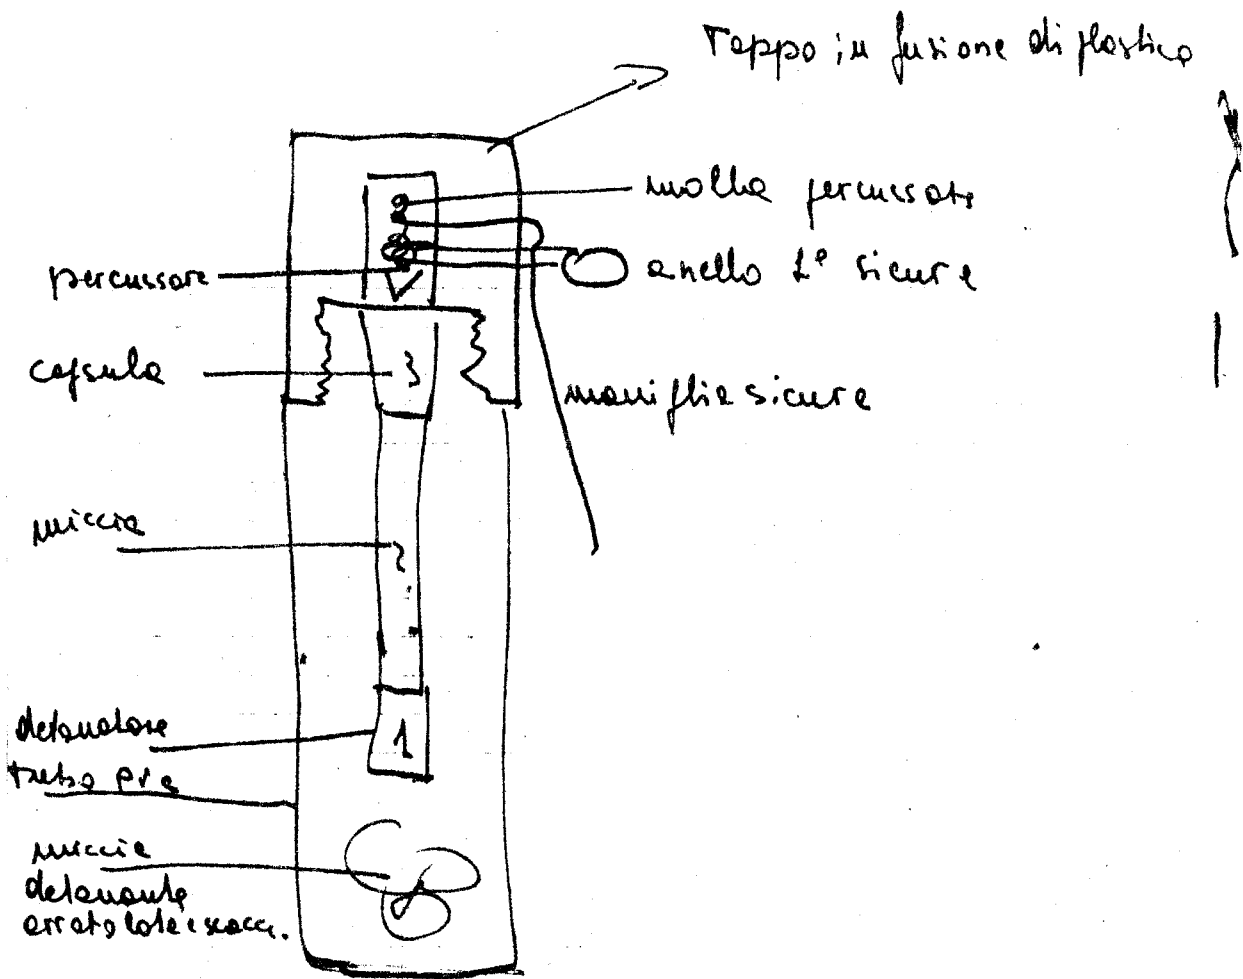 Tappo in fusione di plastica
molla percussore
anello 1ª sicura
percussore
capsula
maniglia sicura
miccia
detonatore
tubo
miccia
detonante
arrotolata e
1